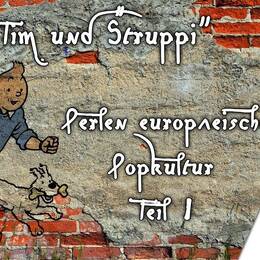 Tim und Struppi"
Perlen europaeisch
Popkultur
Teil 1